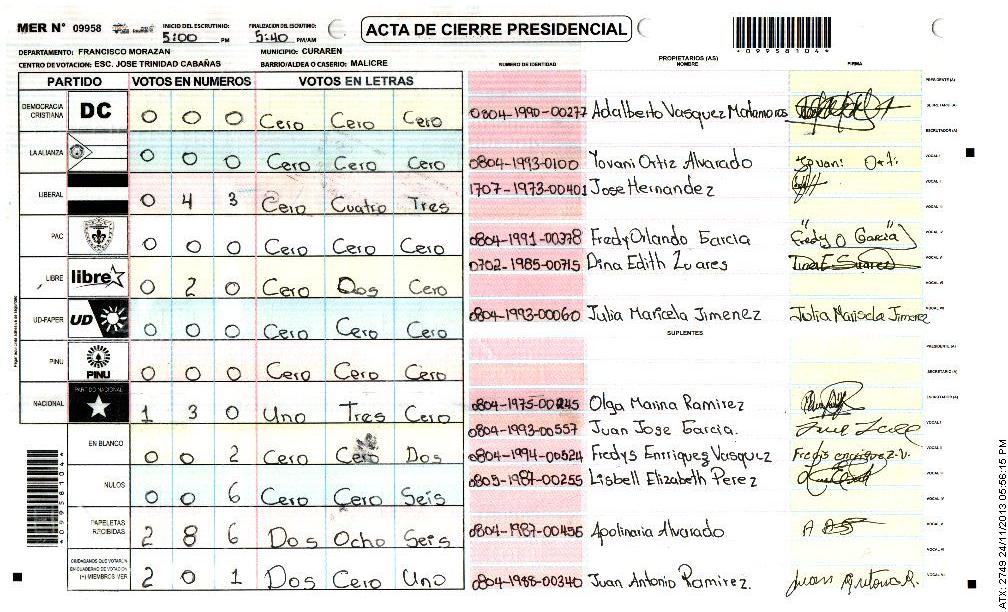 MER N° 09958
INICIO DEL ESCRUTINIO: 5:00 PM
FINALIZACION DEL ESCRUTINIO: 5:40 PM/AM
ACTA DE CIERRE PRESIDENCIAL
*09958104*
DEPARTAMENTO: FRANCISCO MORAZAN
MUNICIPIO: CURAREN
CENTRO DE VOTACION: ESC. JOSE TRINIDAD CABAÑAS
BARRIO/ALDEA O CASERIO: MALICRE
PARTIDO VOTOS EN NUMEROS VOTOS EN LETRAS
DEMOCRACIA CRISTIANA DC 0 0 0 Cero Cero Cero
LA ALIANZA 0 0 0 Cero Cero Cero
LIBERAL 0 4 3 Cero Cuatro Tres
PAC 0 0 0 Cero Cero Cero
LIBRE libre 0 2 0 Cero Dos Cero
UD-FAPER UD 0 0 0 Cero Cero Cero
PINU PINU 0 0 0 Cero Cero Cero
NACIONAL PARTIDO NACIONAL 1 3 0 Uno Tres Cero
EN BLANCO 0 0 2 Cero Cero Dos
NULOS 0 0 6 Cero Cero Seis
PAPELETAS RECIBIDAS 2 8 6 Dos Ocho Seis
CIUDADANOS QUE VOTARON EN CUADERNO DE VOTACION (+) MIEMBROS MER 2 0 1 Dos Cero Uno
*09958104*
NUMERO DE IDENTIDAD
PROPIETARIOS (AS)
NOMBRE
FIRMA
PRESIDENTE(A)
SECRETARIO(A)
0804-1990-00277 Adalberto Vasquez Matamoros
ESCRUTADOR(A)
0804-1993-0100 Yovani Ortiz Alvarado VOCAL I
1707-1973-00401 Jose Hernandez
0804-1991-00378 Fredy Orlando Garcia "Fredy O Garcia"
0702-1985-00715 Dina Edith Zuares
0804-1993-00060 Julia Maricela Jimenez Julia Marisela Jimenez
SUPLENTES
PRESIDENTE(A)
SECRETARIO(A)
0804-1975-00245 Olga Marina Ramirez ESCRUTADOR(A)
0804-1993-00557 Juan Jose Garcia. VOCAL I
0804-1994-00524 Fredys Enrriquez Vasquez
0805-1987-00255 Lisbell Elizabeth Perez
0804-1987-00456 Apolinaria Alvarado
0804-1988-00340 Juan Antonio Ramirez.
ATX 2749 24/11/2013 05:56:15 PM